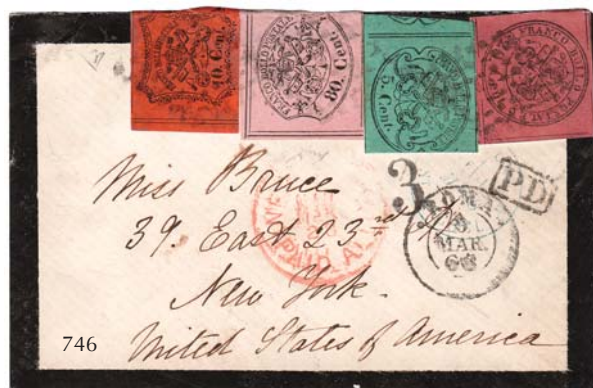 10 Cent.
FRANCO BOLLO POSTALE
80 Cent.
5 Cent.
FRANCO BOLLO POSTALE
Miss Bruce
39. East 23rd St
New York.
United States of America
3
PD
ROMA
MAR.
PAID ALL
746